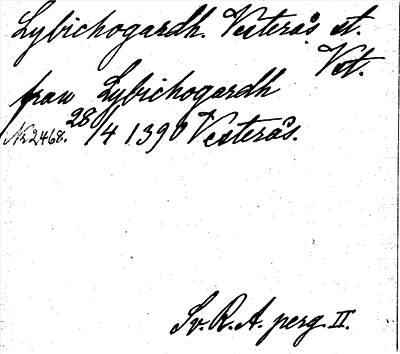 Lybichogardh. Vesterås st.
Vst.
fraw Lybichogardh
Nr 2468. 28/4 1390 Vesterås.
Sv. R. A. perg. II.